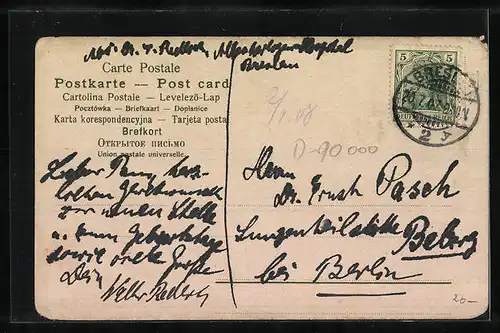 Allerheiligen Hospital
Breslau
Carte Postale
Postkarte — Post card
Cartolina Postale — Levelező-Lap
Pocztówka — Briefkaart — Dopisnice
Karta korespondencyjna — Tarjeta posta
Brefkort
ОТКРЫТОЕ ПИСЬМО
Union postale universelle.
5 5
BRESLAU
2
D-90000
Lieber Pasch, herz-
lichen Glückwunsch
zur neuen Stelle
u. zum Geburtstage
sowie viele Grüße
Dein
Herrn
Dr. Ernst Pasch
Lungenheilstätte
Belzig
bei Berlin
20-